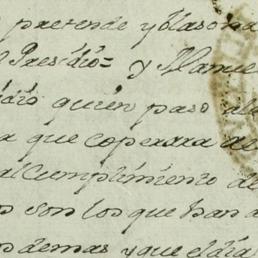 pretende y blasona
Presidio= y Manue
quien paso a la
a que coperara al
al Cumplimiento de
son los que han d
demas y que el dia